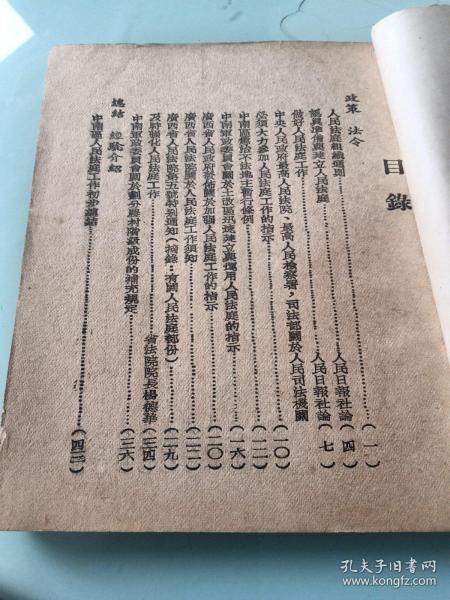 目錄
政策 法令
人民法庭組織通則……(一)
認真準備與建立人民法庭……人民日報社論(四)
做好人民法庭工作……人民日報社論(七)
中央人民政府最高人民法院、最高人民檢察署,司法部關於人民司法機關
必須大力參加人民法庭工作的指示……(一〇)
中南區懲治不法地主暫行條例……(一二)
中南軍政委員會關於土改區迅速建立與運用人民法庭的指示……(一六)
廣西省人民政府發佈關於加强人民法庭工作的指示……(二〇)
廣西省人民法院關於人民法庭工作須知……(二二)
廣西省人民法院第五號特別通知(摘錄:有關人民法庭部份)……(二九)
及時強化人民法庭工作……省法院院長楊德華(三四)
中南軍政委員會關於劃分農村階級成份的補充規定……(三六)
總結 經驗介紹
中南區人民法庭工作初步總結……(四二)
孔夫子旧书网
www.kongfz.com